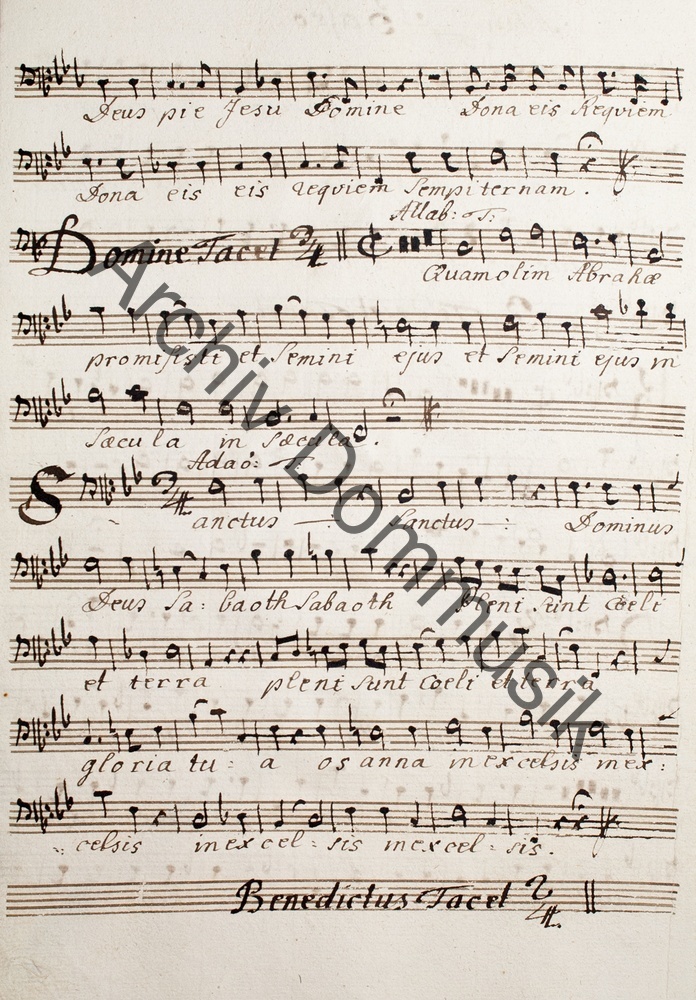 Deus pie Jesu Domine Dona eis Requiem
Dona eis eis requiem Sempiternam.
Allab: T:
Domine Tacet 3/4 Quam olim Abrahæ
promisisti et Semini ejus et Semini ejus in
Sæcula in Sæcula.
Adaō: T:
Sanctus —: Sanctus —: Dominus
Deus Sa: baoth Sabaoth Pleni Sunt Cœli
et terra pleni Sunt Cœli et terra
gloria tu: a osanna in excelsis in ex:
celsis in excel: sis in excel: sis.
Benedictus Tacet 2/4
Archiv Dommusik